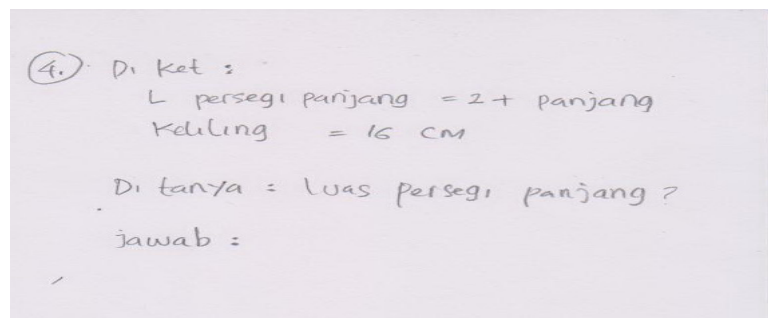 4. Di ket :
L persegi panjang = 2 + panjang
Keliling = 16 CM
Di tanya : luas persegi panjang ?
jawab :